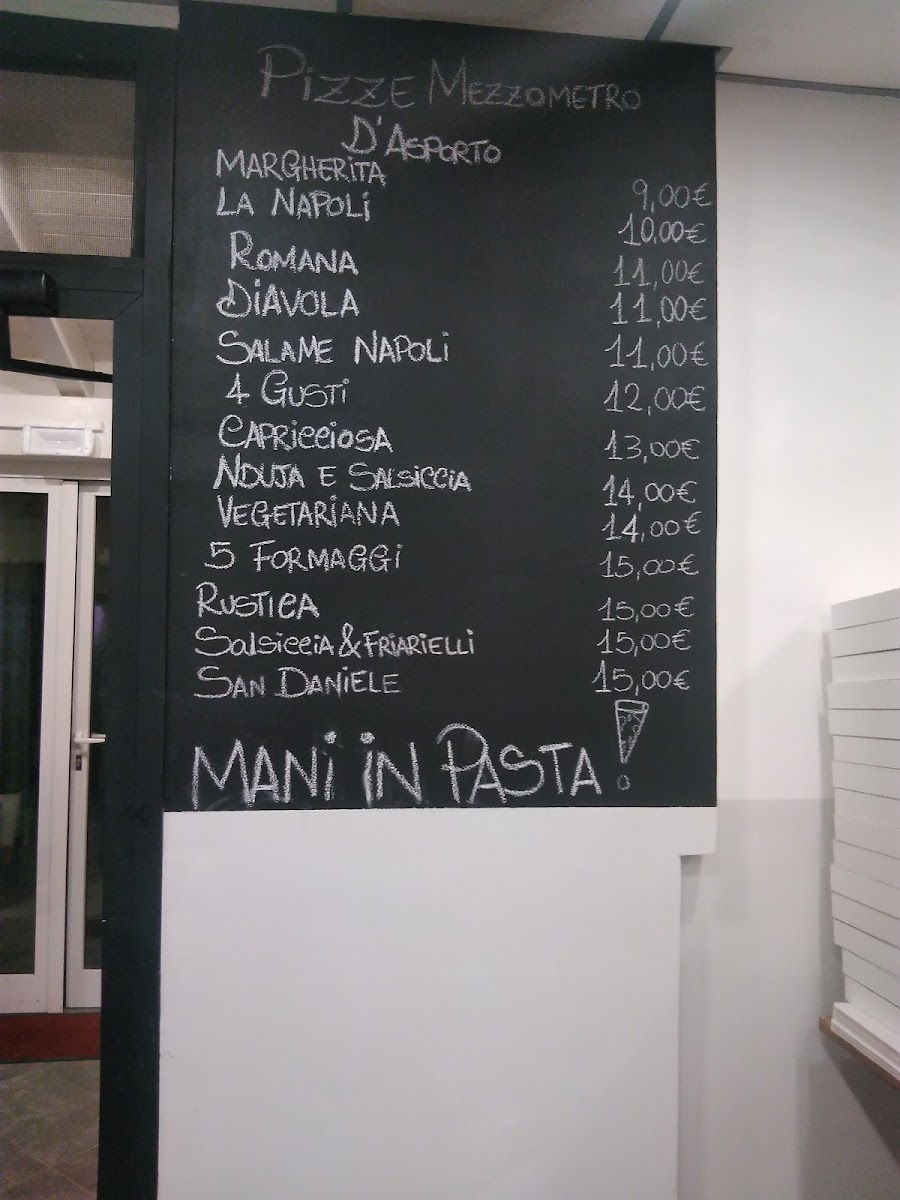 PIZZE MEZZOMETRO
D'ASPORTO
MARGHERITA 9,00€
LA NAPOLI 10,00€
ROMANA 11,00€
DIAVOLA 11,00€
SALAME NAPOLI 11,00€
4 GUSTI 12,00€
CAPRICCIOSA 13,00€
NDUJA E SALSICCIA 14,00€
VEGETARIANA 14,00€
5 FORMAGGI 15,00€
RUSTICA 15,00€
SALSICCIA & FRIARIELLI 15,00€
SAN DANIELE 15,00€
MANI IN PASTA!